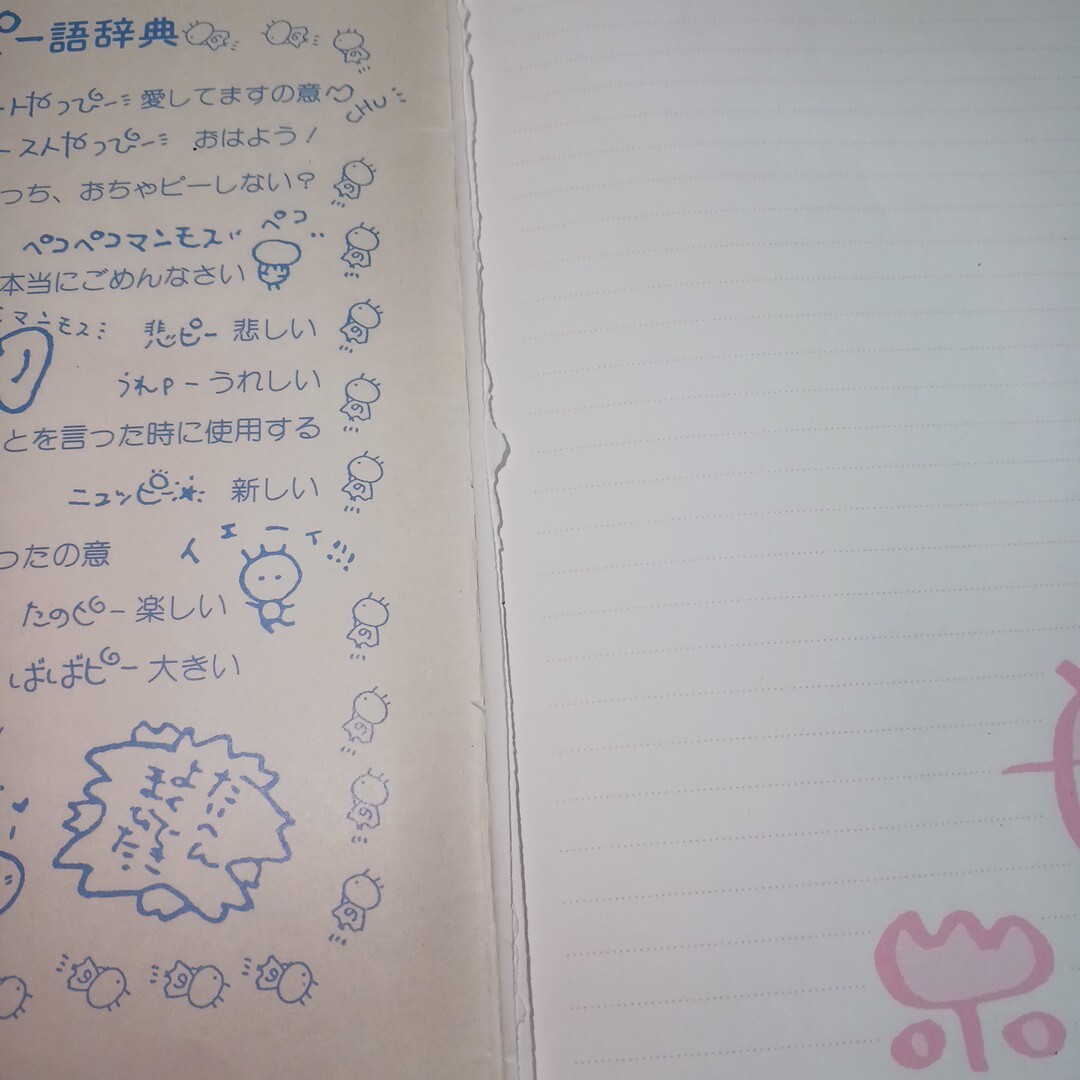 ピー語辞典
ートやっぴー 愛してますの意
ーストやっぴー おはよう!
っち、おちゃピーしない?
ペコペコマンモス ペコ
本当にごめんなさい
マンモス 悲ピー 悲しい
うれPーうれしい
とを言った時に使用する
ニュッピー 新しい
ったの意 イエーイ!!!
たのピー 楽しい
ばばピー 大きい